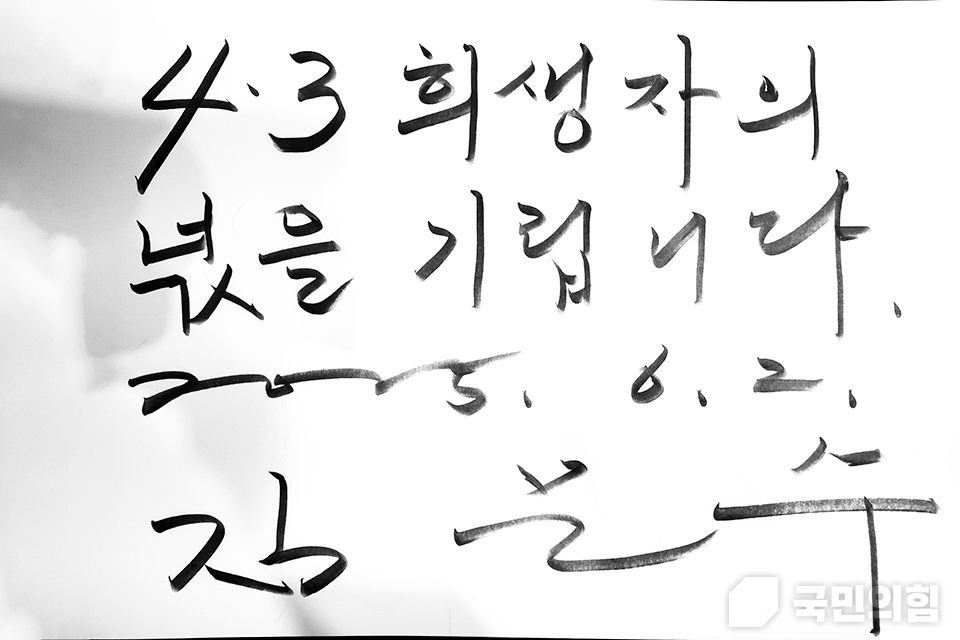 4·3 희생자의
넋을 기립니다.
2025. 6. 2.
김문수
국민의힘